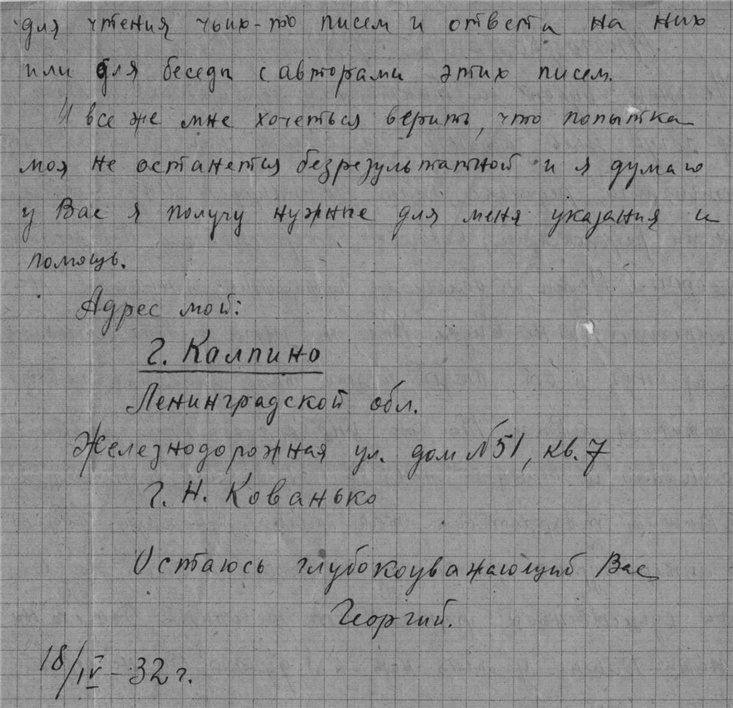 для чтения чьих-то писем и ответа на них
или для беседы с авторами этих писем.
И все же мне хочеться верить, что попытка
моя не останется безрезультатной и я думаю
у Вас я получу нужные для меня указания и
помощь.
Адрес мой:
г. Калпино
Ленинградской обл.
Железнодорожная ул. дом №51, кв. 7
Г. Н. Кованько
Остаюсь глубокоуважающий Вас
Георгий.
18/IV - 32 г.